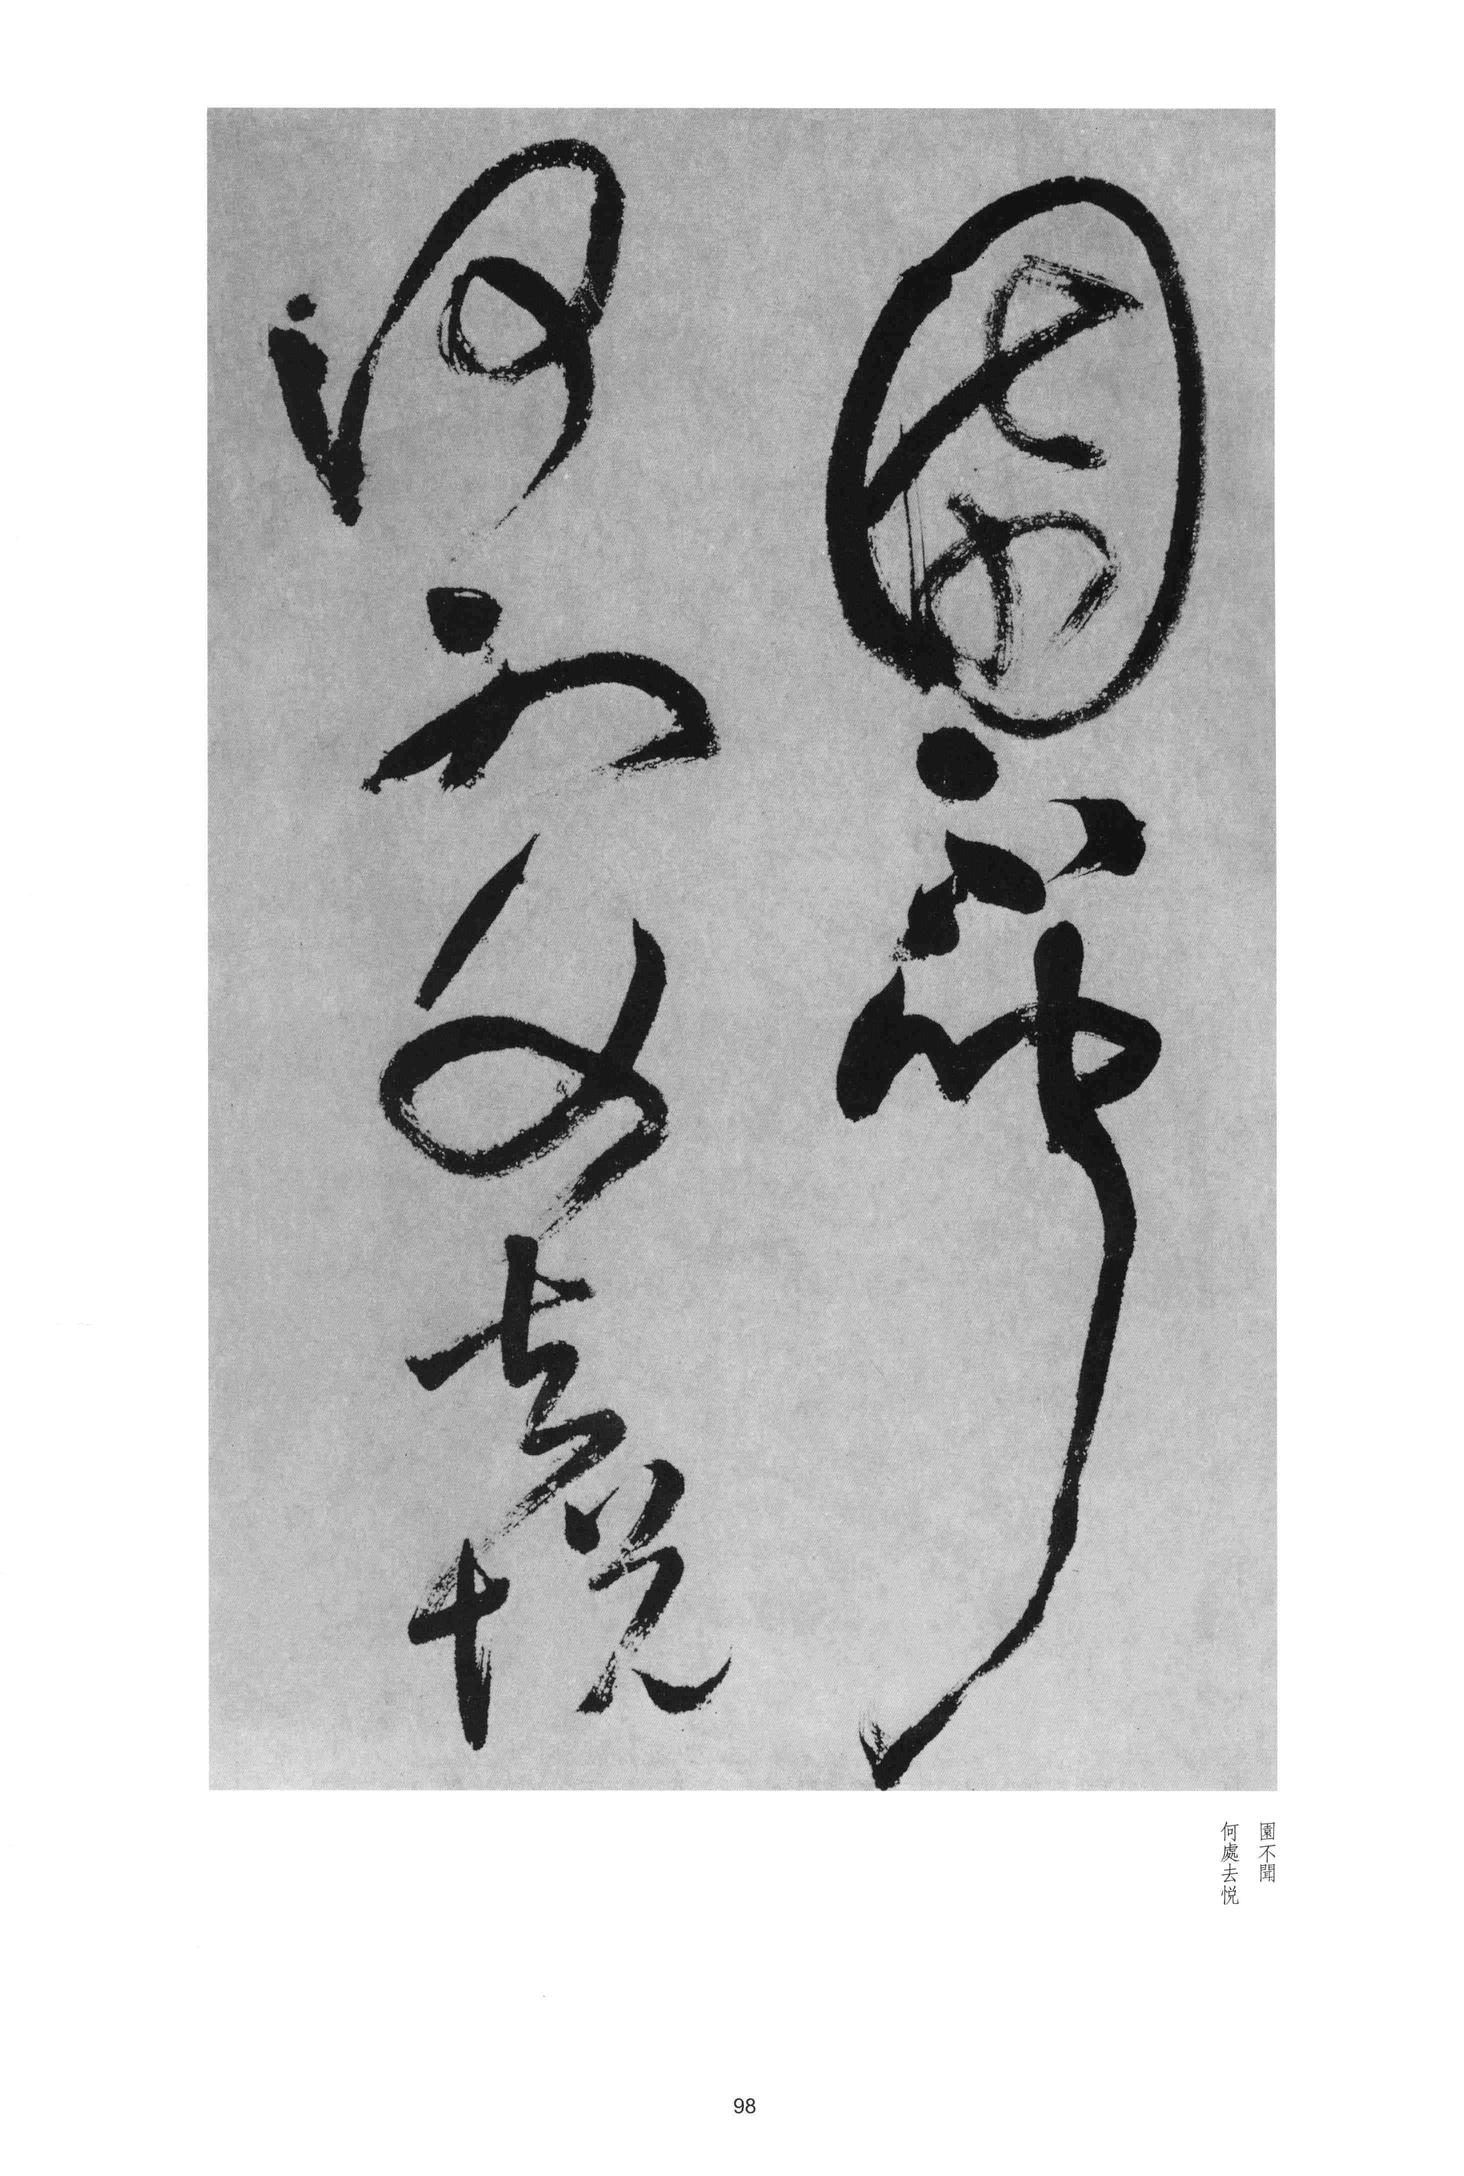 園不聞
何處去悦
園不聞
何處去悦
98